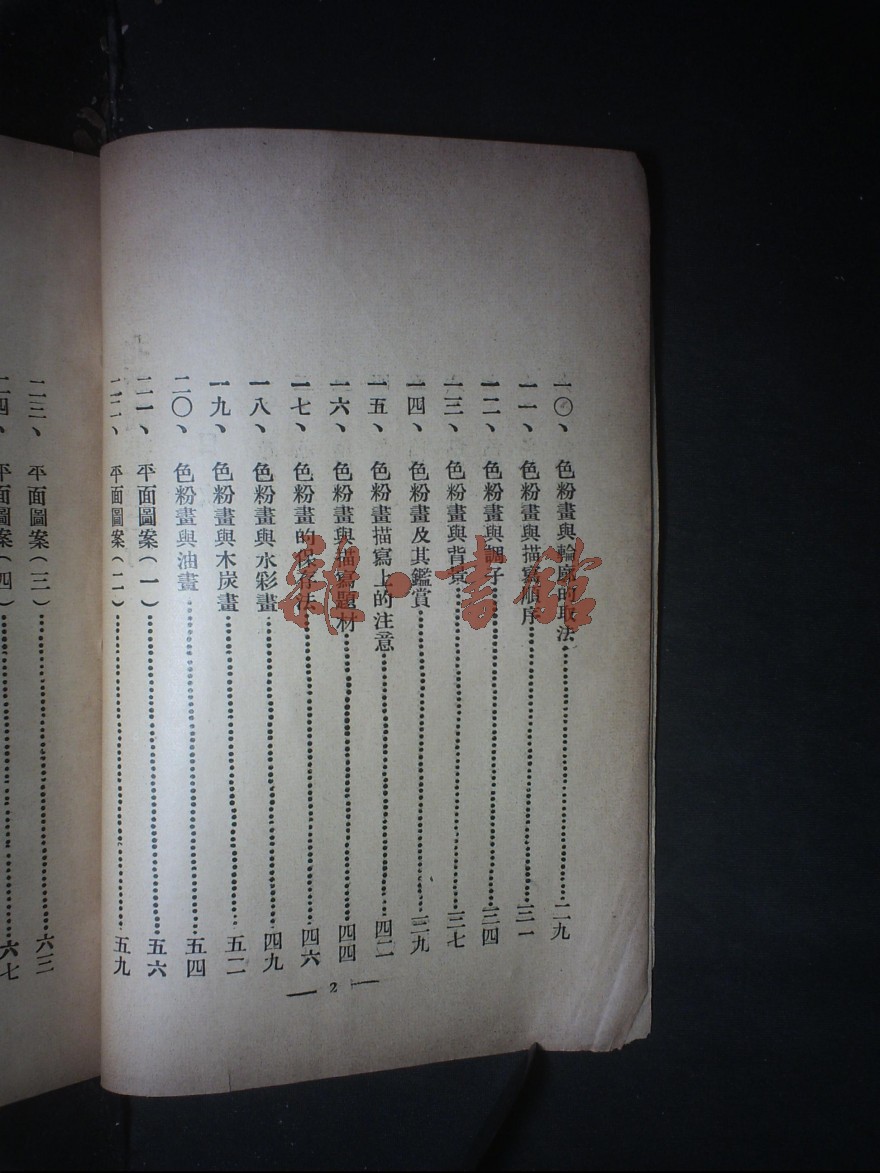 一〇、 色粉畫與輪廓的取法……二九
一一、 色粉畫與描寫順序……三一
一二、 色粉畫與調子……三四
一三、 色粉畫與背景……三七
一四、 色粉畫及其鑑賞……三九
一五、 色粉畫描寫上的注意……四二
一六、 色粉畫與描寫題材……四四
一七、 色粉畫的保存法……四六
一八、 色粉畫與水彩畫……四九
一九、 色粉畫與木炭畫……五二
二〇、 色粉畫與油畫……五四
二一、 平面圖案(一)……五六
二二、 平面圖案(二)……五九
— 2 —
二三、 平面圖案(三)……六三
二四、 平面圖案(四)……六七
雜·書館